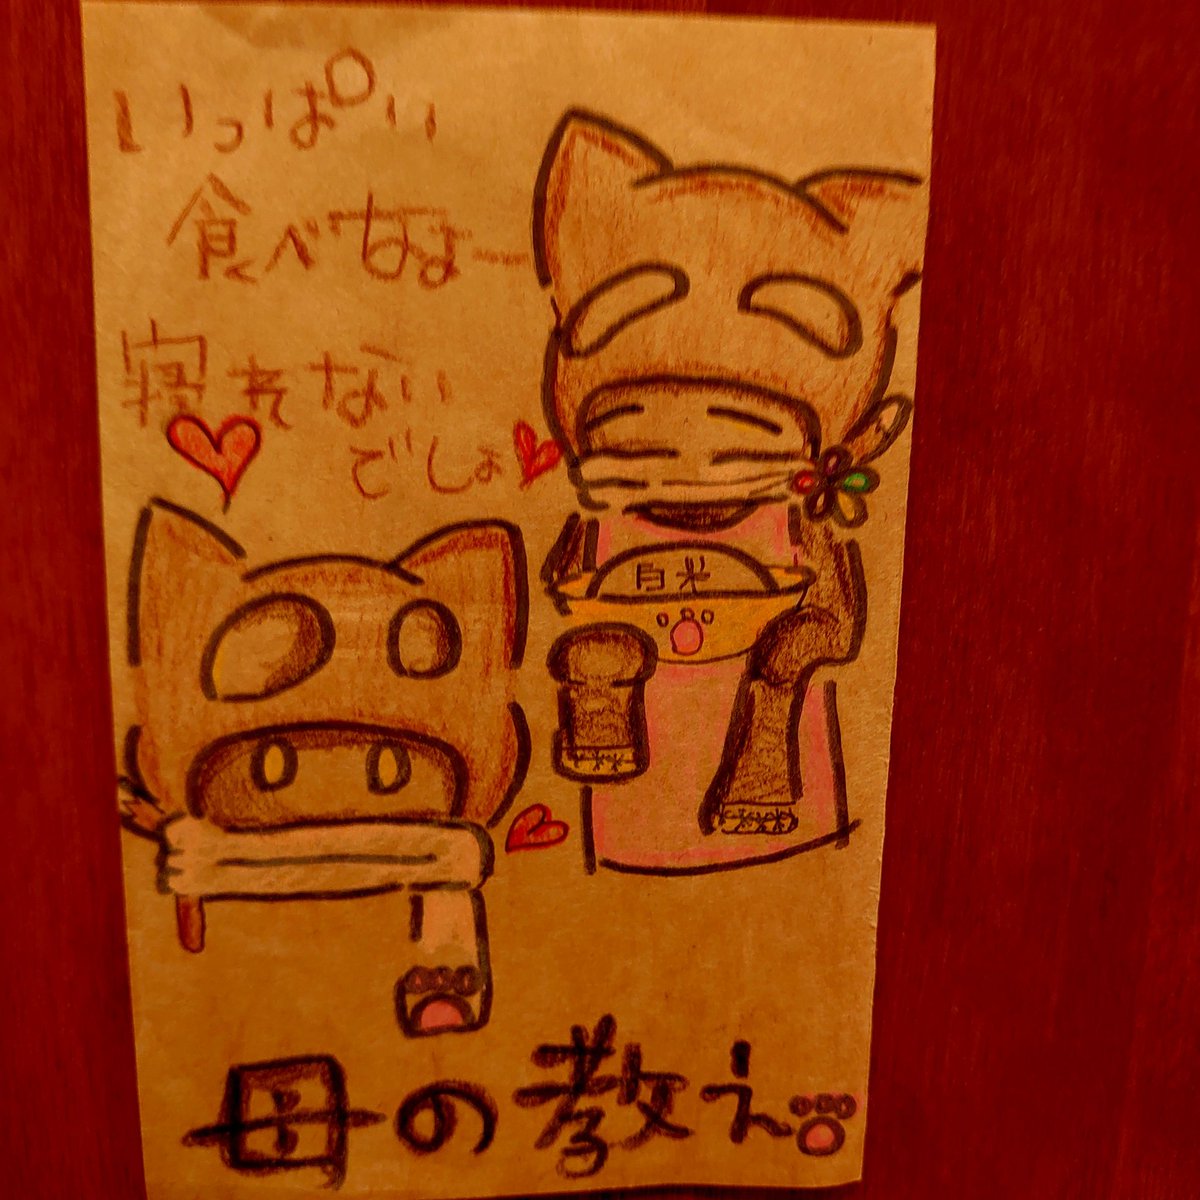 いっぱい
食べなよー
寝れない
でしょ
白米
母の教え